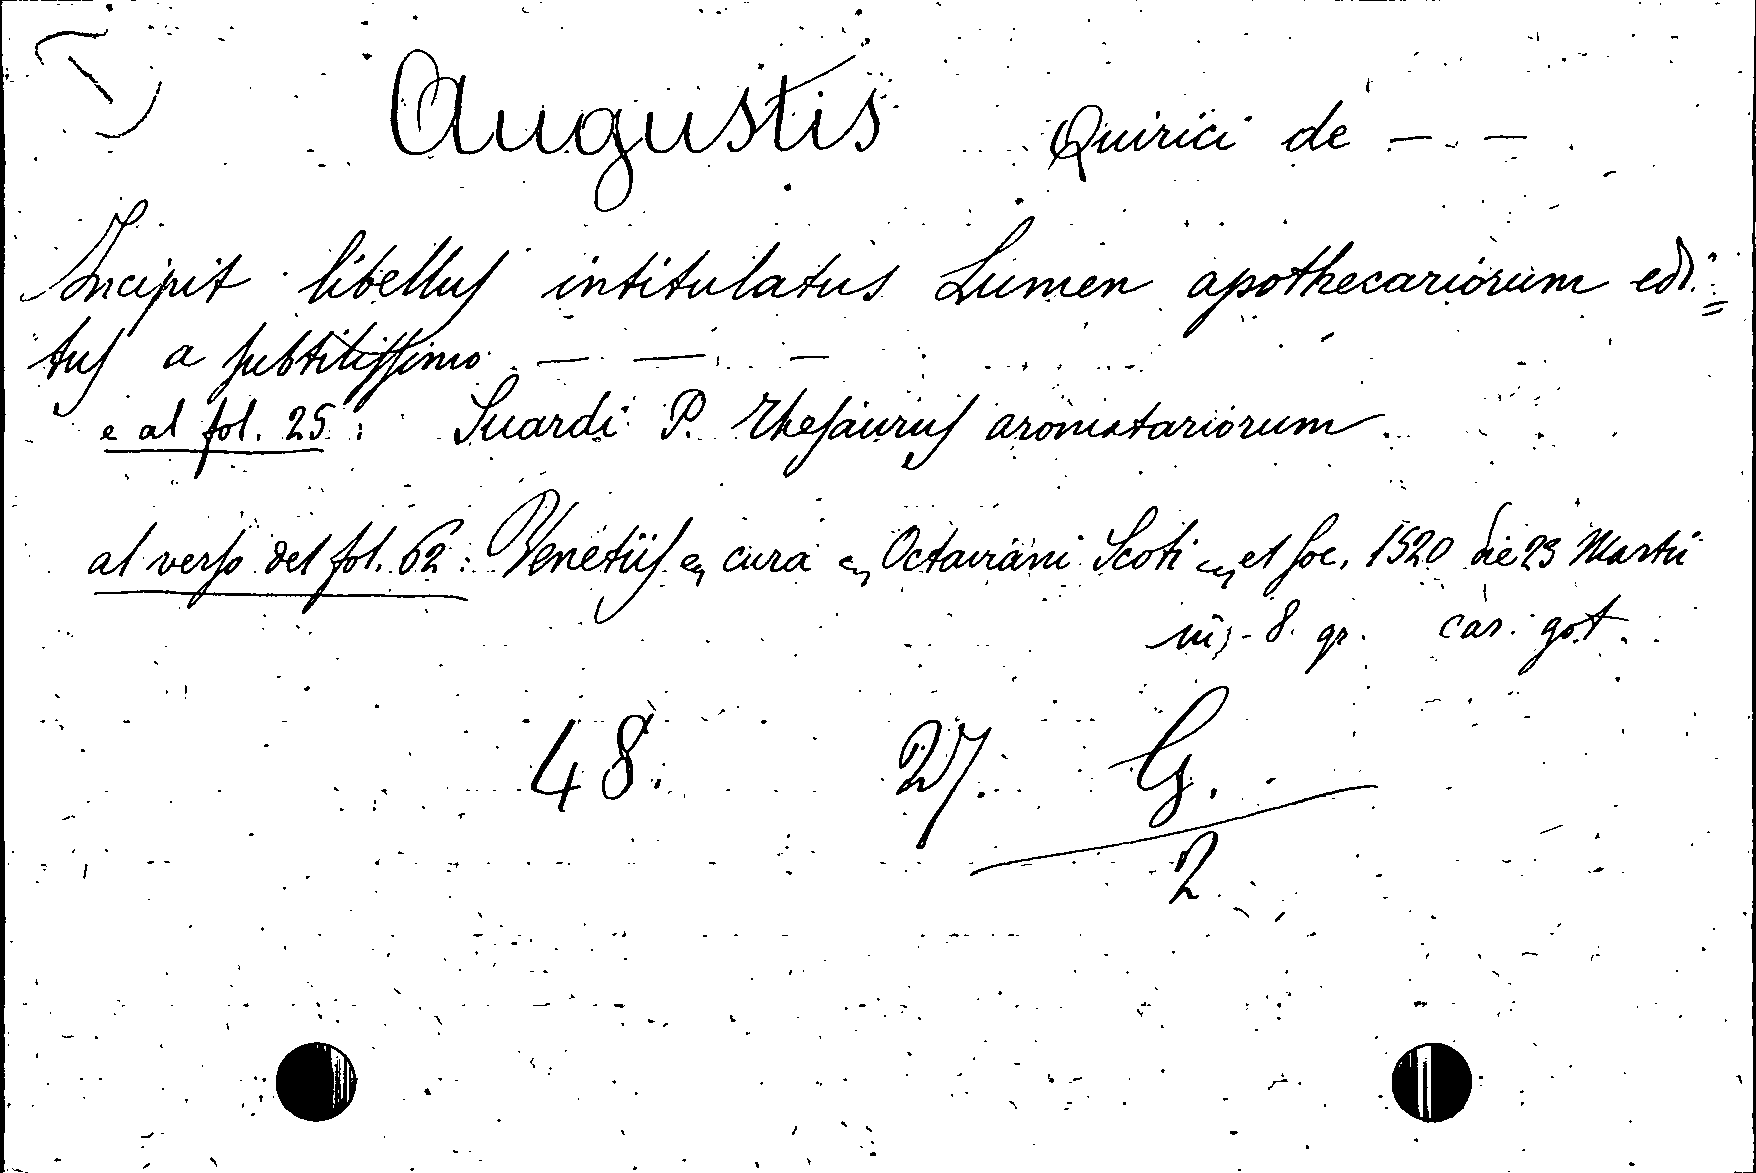 Augustis Quirici de — . —
Incipit libellus intitulatus Lumen apothecariorum edi=
tus a subtilissimo — — —
e al fol. 25 : Suardi P. Thesaurus aromatariorum
al verso del fol. 62 : Venetiis cura Octaviani Scoti et soc. 1520 die 23 Martii
8. gr. car. got.
48. 27. G.
2